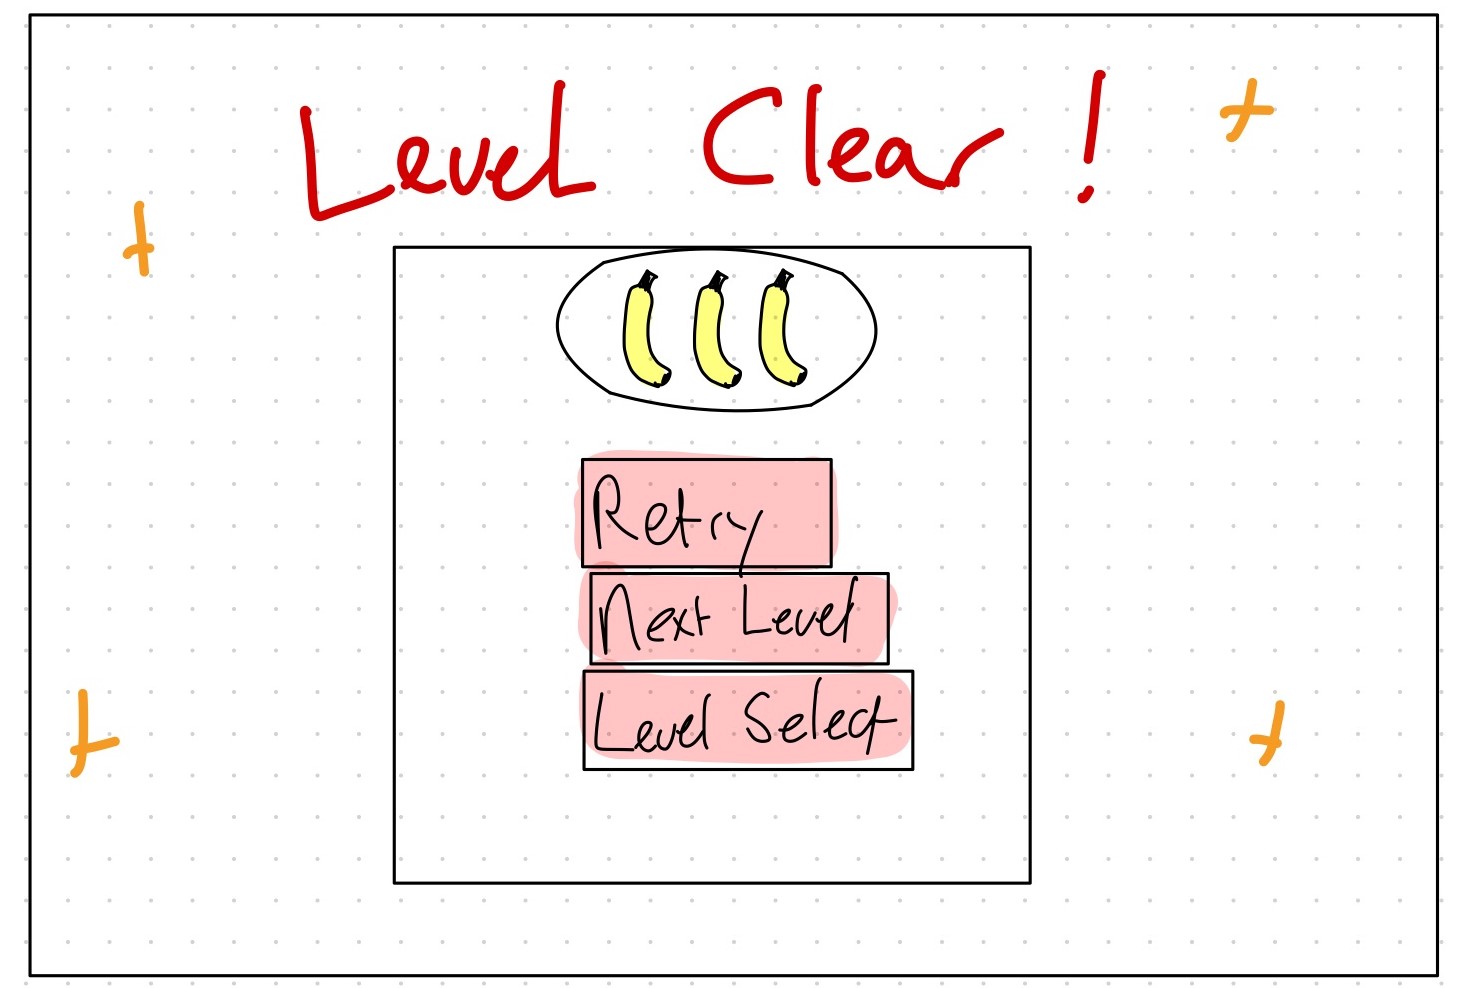 Level Clear!
Retry
Next Level
Level Select